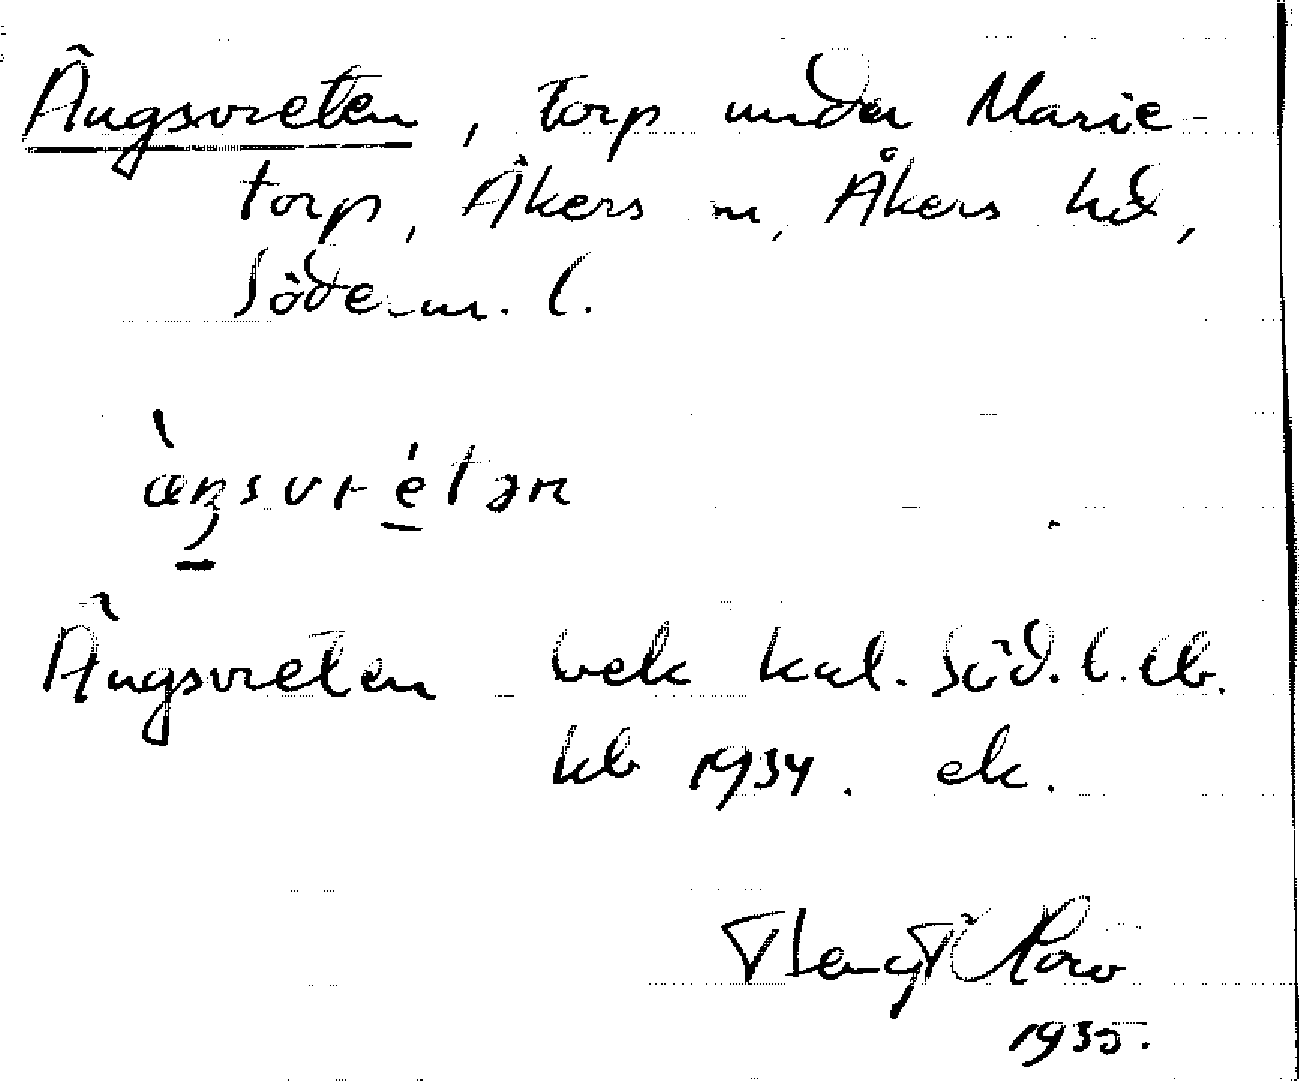 Ängsvreten, torp under Marie-
torp, Åkers sn, Åkers hd,
Söderm. l.
æ̀ŋsvrétən
Ängsvreten bek kal. Söd. l. lb.
kb 1934. ek.
1935.